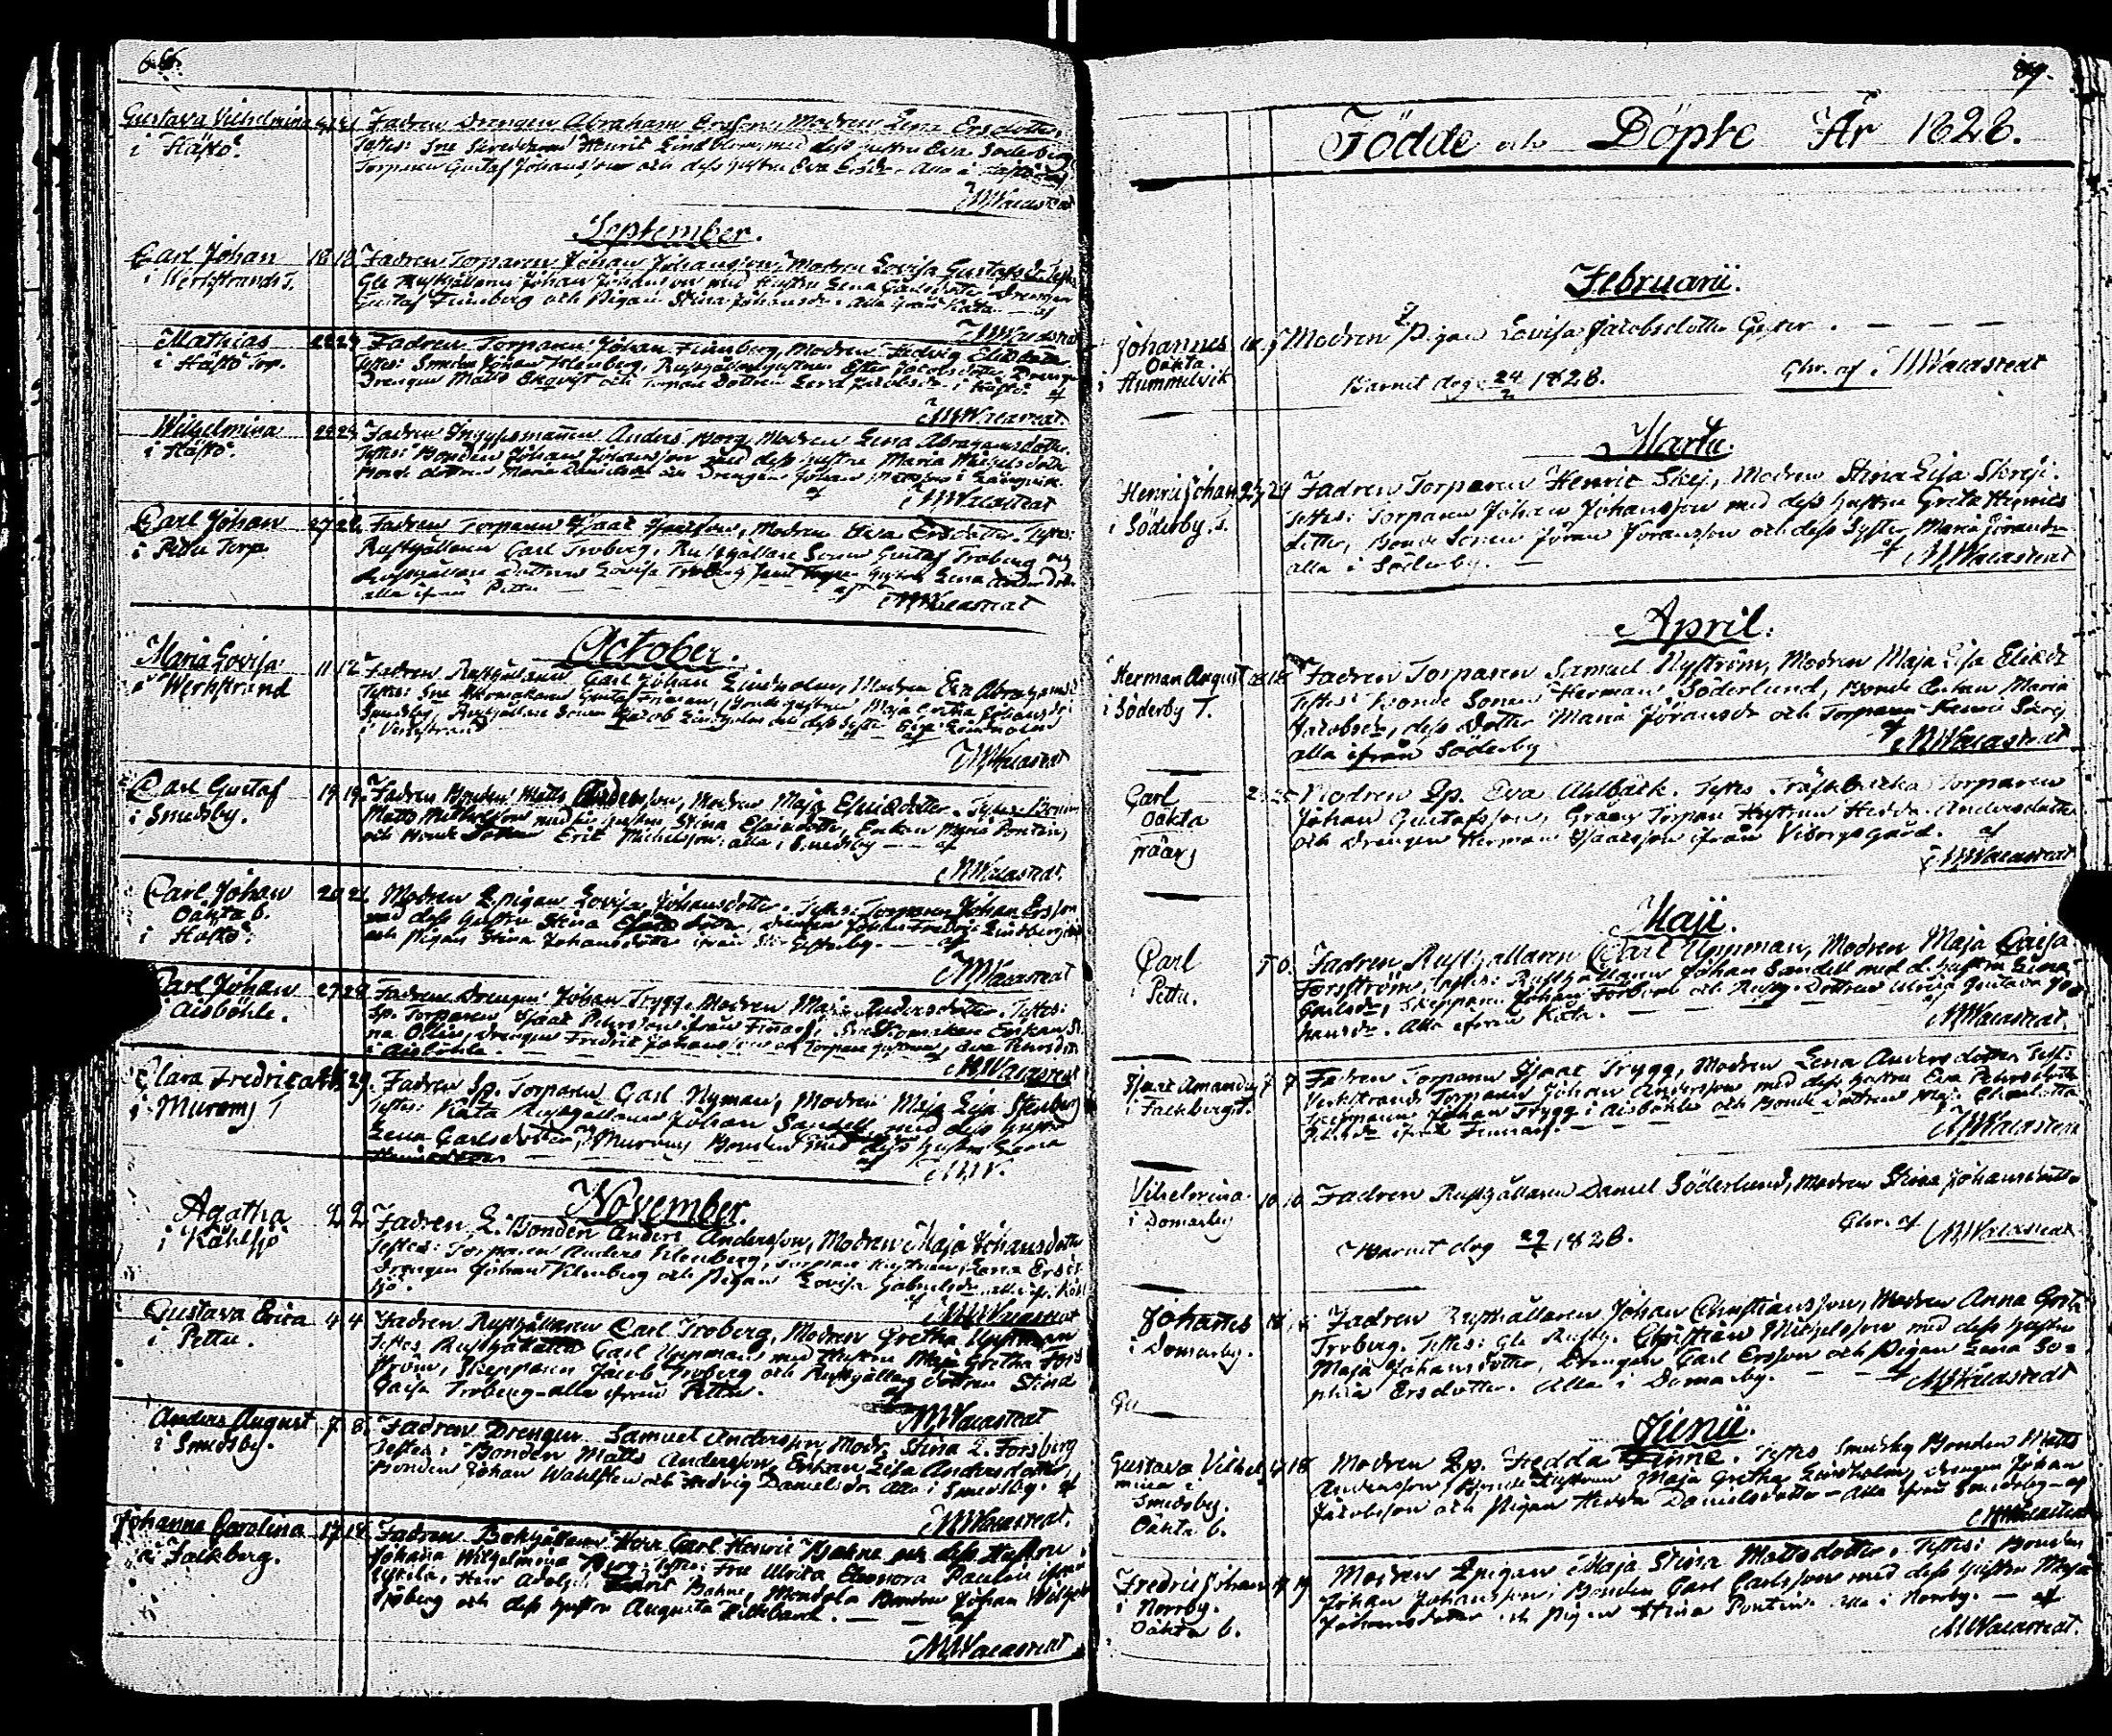 66.
Gustava Vilhelmina
i Håstö.
Fadren Drengen Abraham Ersson, Modren Lena Ersdotter,
Testes: Sne Skreddaren Henric Lindblom, med dess hustru Eva Söderberg
Torparen Gustaf Johansson och dess hustru Eva Ersdr. Alla i Håstö
MWacastedt
September.
Carl Johan
i Werkstrands T.
18 18 Fadren Torparen Johan Johansson, Modren Lovisa Gustafsdr Testes
Gle Rusthållaren Johan Johansson med Hustru Lena Carlsdotter Drengen
Gustaf Finnberg och Pigan Stina Johansdr. Alla ifrån Kåta af
MWacastedt
Mathias
i Håstö Torp.
Fadren Torparen Johan Finnberg, Modren Hedvig
Testes: Smeden Johan Drengen
Drengen Matts Enqvist och Torpare Dottren Jacobsdr. i Håstö. af
MWacastedt
Wilhelmina
i Håstö.
Fadren Inhysesmannen Anders Borg Modren Lena Abrahamsdotter.
Testes: Bonden Johan Johansson med dess hustru Maria Michelsdotter
Bonde dottren Maria och Drengen Johan
MWacastedt
Carl Johan
i Pettu Torp
27 28 Fadren Torparen Isaac Isaacsson, Modren Eva Ersdotter. Testes:
Rusthållaren Carl Troberg, Rusthållare Sonen Gustaf Troberg och
Rusthållare Dottren Lovisa Troberg samt Lena
alla ifrån Pettu af
MWacastedt
October.
Maria Lovisa
i Werkstrand
11 12 Fadren Rusthållaren Carl Johan Lindholm, Modren Eva Abrahamsdr
Testes: Sne Gustaf Bonde hustrun Maja Greta Johansdr i
Smedsby, Rusthållare Sonen Jacob Lindholm och dess Syster Lindholm
i Verkstrand
MWacastedt
Carl Gustaf
i Smedsby.
19 19. Fadren Bonden Matts Andersson, Modren Maja Esaiædotter. Testes: Bonden
Matts Michelsson med dess hustru Stina Esaiædotter, Enkan Maria Pontin,
och Bonde Sonen Eric Michelsson, alla i Smedsby — af
MWacastedt.
Carl Johan
Oäkta b.
i Håstö.
20 21 Modren Qpigan Lovisa Johansdotter. Testes: Torparen Johan Ersson
med dess hustru Stina dotter, Drengen Johan Fredric Lindberg
och Pigan Stina Johansdotter ifrån — af
MWacastedt
Carl Johan
i Aisböhle.
27 28 Fadren Drengen Johan Trygg, Modren Maja Andersdotter. Testes:
Sp. Torparen Isaac Petersson ifrån Finnarf, Sne Skomakare Enkan Sti-
na Ollin, Drengen Fredric Johansson och Torpare hustrun Eva Petersdr
i Aisböhle. —
MWacastedt
Clara Fredrica
i Muromj T
29. Fadren Sp. Torparen Carl Nyman, Modren Maja Lisa Stenberg
Testes: Kåta Rusthållaren Johan Sandell med dess hustru
Lena Carlsdotter, Muromj Bonden med dess hustru Lena
af
MW.
November.
Agatha
i Kåhlsjö
2 2 Fadren Q. Bonden Anders Andersson, Modren Maja Johansdotter
Testes: Torparen Anders Vilenberg, Torpare hustrun Lena Ersdr
Drengen Johan Vilenberg och Pigan Lovisa Gabrielsdr alla ifr. Kåhl
sjö. af
MWacastedt
Gustava Erica
i Pettu.
4 4 Fadren Rusthållaren Carl Troberg, Modren Gretha Uppman
Testes Rusthållaren Carl Uppman med Hustru Maja Gretha Fors
ström, Skepparen Jacob Troberg och Rusthållare dottren Stina
Caisa Troberg — alla ifrån Pettu. af
MWacastedt
Anders August
i Smedsby.
7 8. Fadren Drengen Samuel Andersson, Modr. Stina L. Forsberg
Testes: Bonden Matts Andersson, Enkan Lisa Andersdotter,
Bonden Johan Wahlsten och Hedvig Danielsdr. Alla i Smedsby. af
MWacastedt.
Johanna Carolina
i Falkberg.
17 18. Fadren Bokhållaren Herr Carl Henric Bahne och dess Hustru
Johana Wilhelmina Berg. Testes: Fru Ulrica Eleonora Paulin ifrån
Herr Adolph Bahne, Bonden Johan Wilhelm
Sjöberg och dess hustru Augusta — af
MWacastedt
Födde och Döpte År 1828.
Februarii.
Johannes
Oäkta
i Hummelvik
Modren Qpigan Lovisa Jacobsdotter — — —
Barnet dog 24/2 1828. Chr. af MWacastedt
Martii.
Henric Johan
i Söderby. T.
23 24 Fadren Torparen Henric Skej, Modren Stina Lisa Skrej.
Testes: Torparen Johan Johansson med dess hustru Greta Henrics
dotter, Bonde Sonen Jöran Jöransson och dess Syster Maria Jöransdr
alla i Söderby. — af MWacastedt
April.
Herman August
i Söderby T.
Fadren Torparen Samuel Nyström, Modren Maja Lisa
Testes: Bonde Sonen Herman Söderlund, Bonde Enkan Maria
Jacobsdr, dess Dotter Maria Jöransdr och Torparen Henric Skrej
alla ifrån Söderby af MWacastedt
Carl
Oäkta
Modren Qp. Eva Ahlbäck. Testes Träskbacka Torparen
Johan Gustafsson, Torpare Hustrun Hedda Andersdotter
och Drengen Herman Isaacsson ifrån Viborgsgård. af
MWacastedt
Maji.
Carl
i Pettu.
5 6. Fadren Rusthållaren Carl Uppman, Modren Maja Caisa
Forsström, Testes: Rusthållaren Johan Sandell med d. hustru Lena
Carlsdr, Skepparen Johan Forsbom och Rusth. Dottren Ulrica Gustava Jo-
hansdr. Alla ifrån Kåta. — af
MWacastedt
Isaac Amandus
i Falkberg T.
7 7 Fadren Torparen Isaac Trygg, Modren Lena Andersdotter. Test:
Verkstrands Torparen Johan Andersson med dess hustru Eva Petersdotter
Johan Trygg i Aisböhle och Bonde Dottren Maja Charlotta
ifrån Finnarf. — af
MWacastedt
Vilhelmina
i Domarby
10 10 Fadren Rusthållaren Daniel Söderlund, Modren Stina Johansdotter
Barnet dog 29/ 1828. Chr. af MWacastedt
Johannes
i Domarby.
Fadren Rusthållaren Johan Christiansson, Modren Anna Greta
Troberg. Testes: Gle Rusth. Christian Michelsson med dess hustru
Maja Johansdotter, Drengen Carl Ersson och Pigan Lena So-
phia Ersdotter. Alla i Domarby. — — af MWacastedt
Gu
Junii.
Gustava Vilhel-
mina i
Smedsby.
Oäkta b.
17 18 Modren Qp. Hedda Finne. Testes Smedsby Bonden Matts
Andersson, Bonde Hustrun Maja Gretha Lindholm, Drengen Johan
Jacobsson och Pigan Hedda Danielsdotter — Alla ifrån Smedsby — af
MWacastedt
Fredric Johan
i Norrby.
Oäkta b.
19 19 Modren Qpigan Maja Stina Mattsdotter. Testes: Bonden
Johan Johansson, Bonden Carl Carlsson med dess hustru Maja
Johansdotter och Pigan Stina Pontin. Alla i Norrby. — af
MWacastedt.